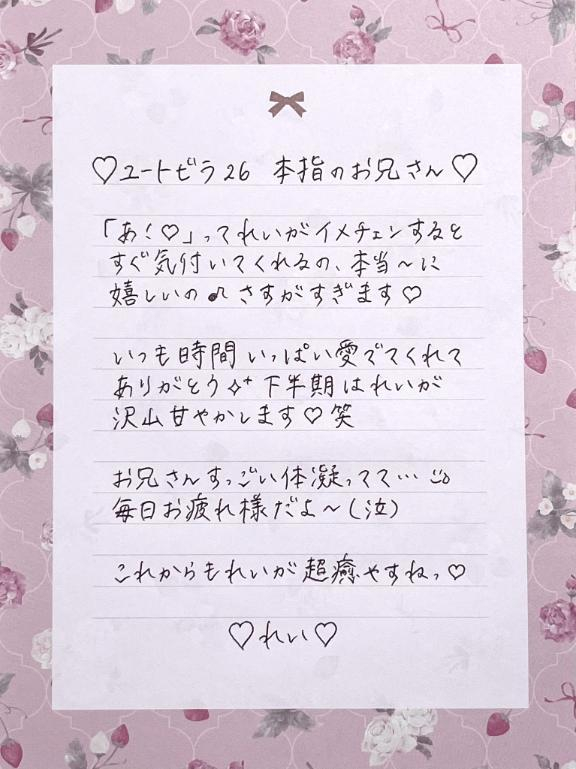 ♡ユートピラ26 本指のお兄さん♡
「あ!♡」ってれいがイメチェンすると
すぐ気付いてくれるの、本当〜に
嬉しいの♫ さすがすぎます♡
いつも時間いっぱい愛でてくれて
ありがとう✧⁺ 下半期はれいが
沢山甘やかします♡笑
お兄さんすっごい体凝ってて…
毎日お疲れ様だよ〜(泣)
これからもれいが超癒やすねっ♡
♡れい♡